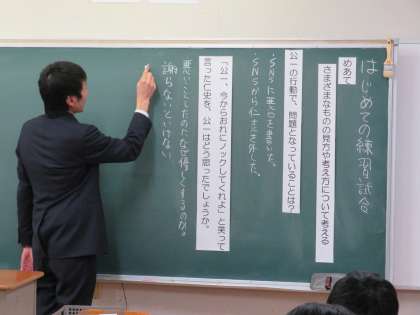 はじめての練習試合
めあて
さまざまなものの見方や考え方について考える
公一の行動で、問題となっていることは？
・SNSに悪口を書いた。
・SNSから仁史を外した。
「公一、今からおれにノックしてくれよ」と笑って
言った仁史を、公一はどう思ったでしょうか。
悪いことしたのに、なぜ優しくするのか。
謝らないといけない